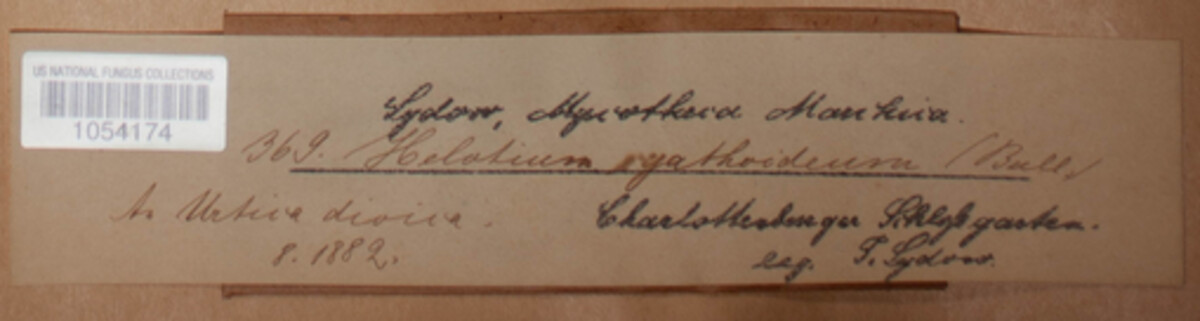 US NATIONAL FUNGUS COLLECTIONS
1054174
Sydow, Mycotheca Marchica.
369. Helotium cyathoideum (Bull.)
An Urtica dioica.
8. 1882.
Charlottenburger Schloßgarten.
leg. P. Sydow.